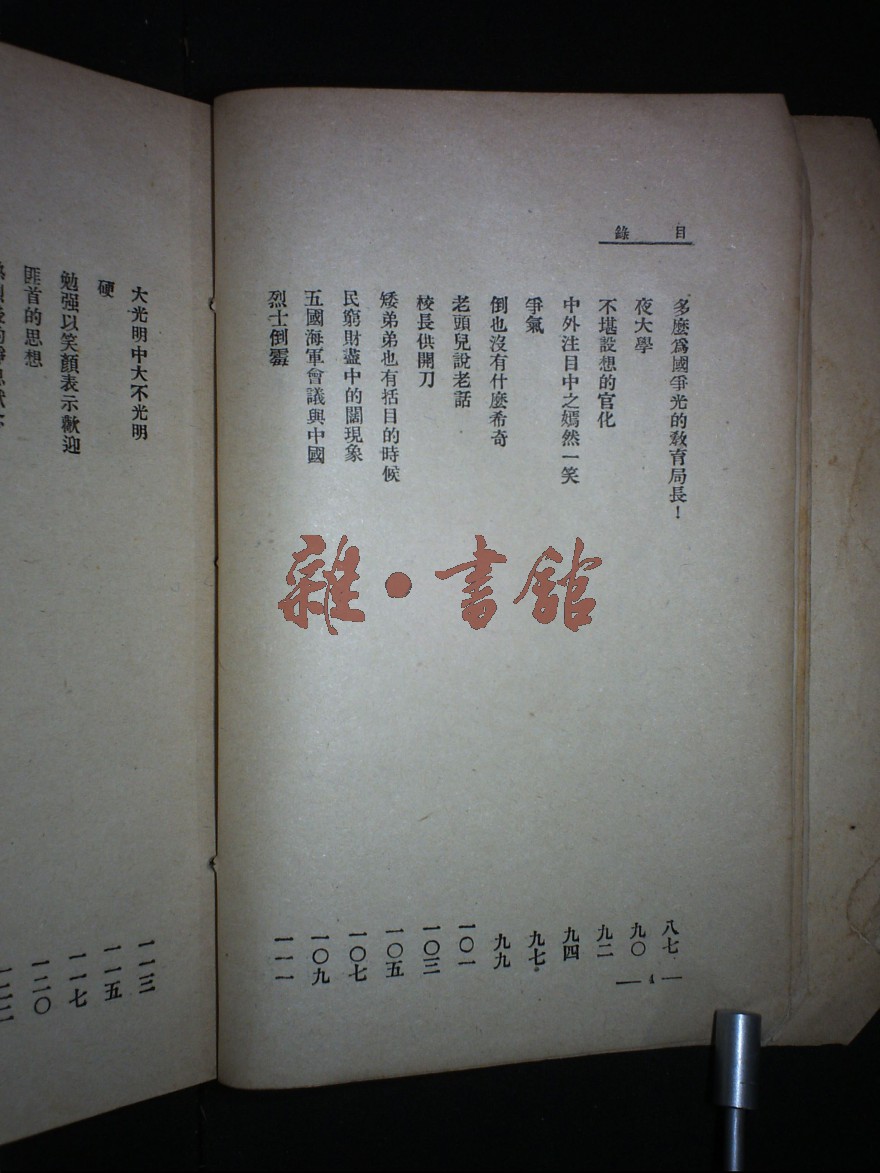 目錄
多麼爲國爭光的敎育局長！
八七
夜大學
九〇
不堪設想的官化
九二
中外注目中之嫣然一笑
九四
爭氣
九七
倒也沒有什麼希奇
九九
老頭兒說老話
一〇一
校長供開刀
一〇三
矮弟弟也有括目的時候
一〇五
民窮財盡中的闊現象
一〇七
五國海軍會議與中國
一〇九
烈士倒霉
一一一
— 4 —
大光明中大不光明
一一三
硬
一一五
勉强以笑顏表示歡迎
一一七
匪首的思想
一二〇
雜·書館